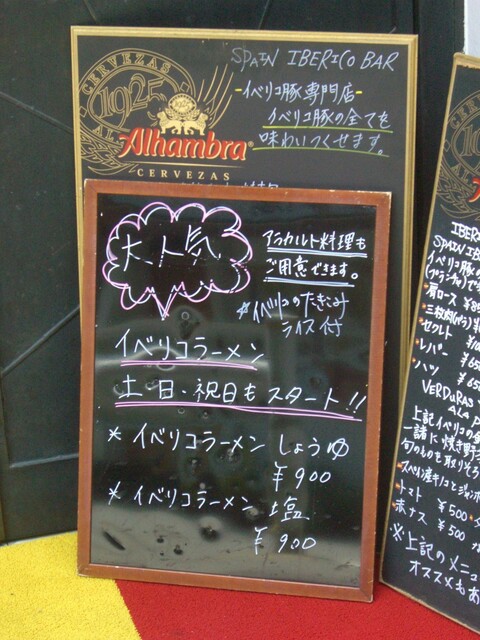 SPAIN IBERICO BAR
-イベリコ豚専門店-
イベリコ豚の全てを
味わいつくせます。
CERVEZAS
1925
Alhambra
CERVEZAS
大人気
アラカルト料理も
ご用意できます。
*イベリコのたきこみ
ライス付
イベリコラーメン
土・日・祝日もスタート!!
*イベリコラーメン しょうゆ
¥900
*イベリコラーメン 塩
¥900
CERVEZAS
19
Al
IBERI
SPAIN IB
イベリコ豚の
(プランチャ)で
・肩ロース ¥8
・三枚肉(バラ)
・セクレト
・レバー ¥65
・ハツ ¥65
VERDURAS
ALA P
上記イベリコの
一諸に焼き野
旬のものを取りそろ
・スペイン産キノコとジャンボ
・トマト ¥500
・赤ナス ¥500
※上記のメニュ
オススメもあ